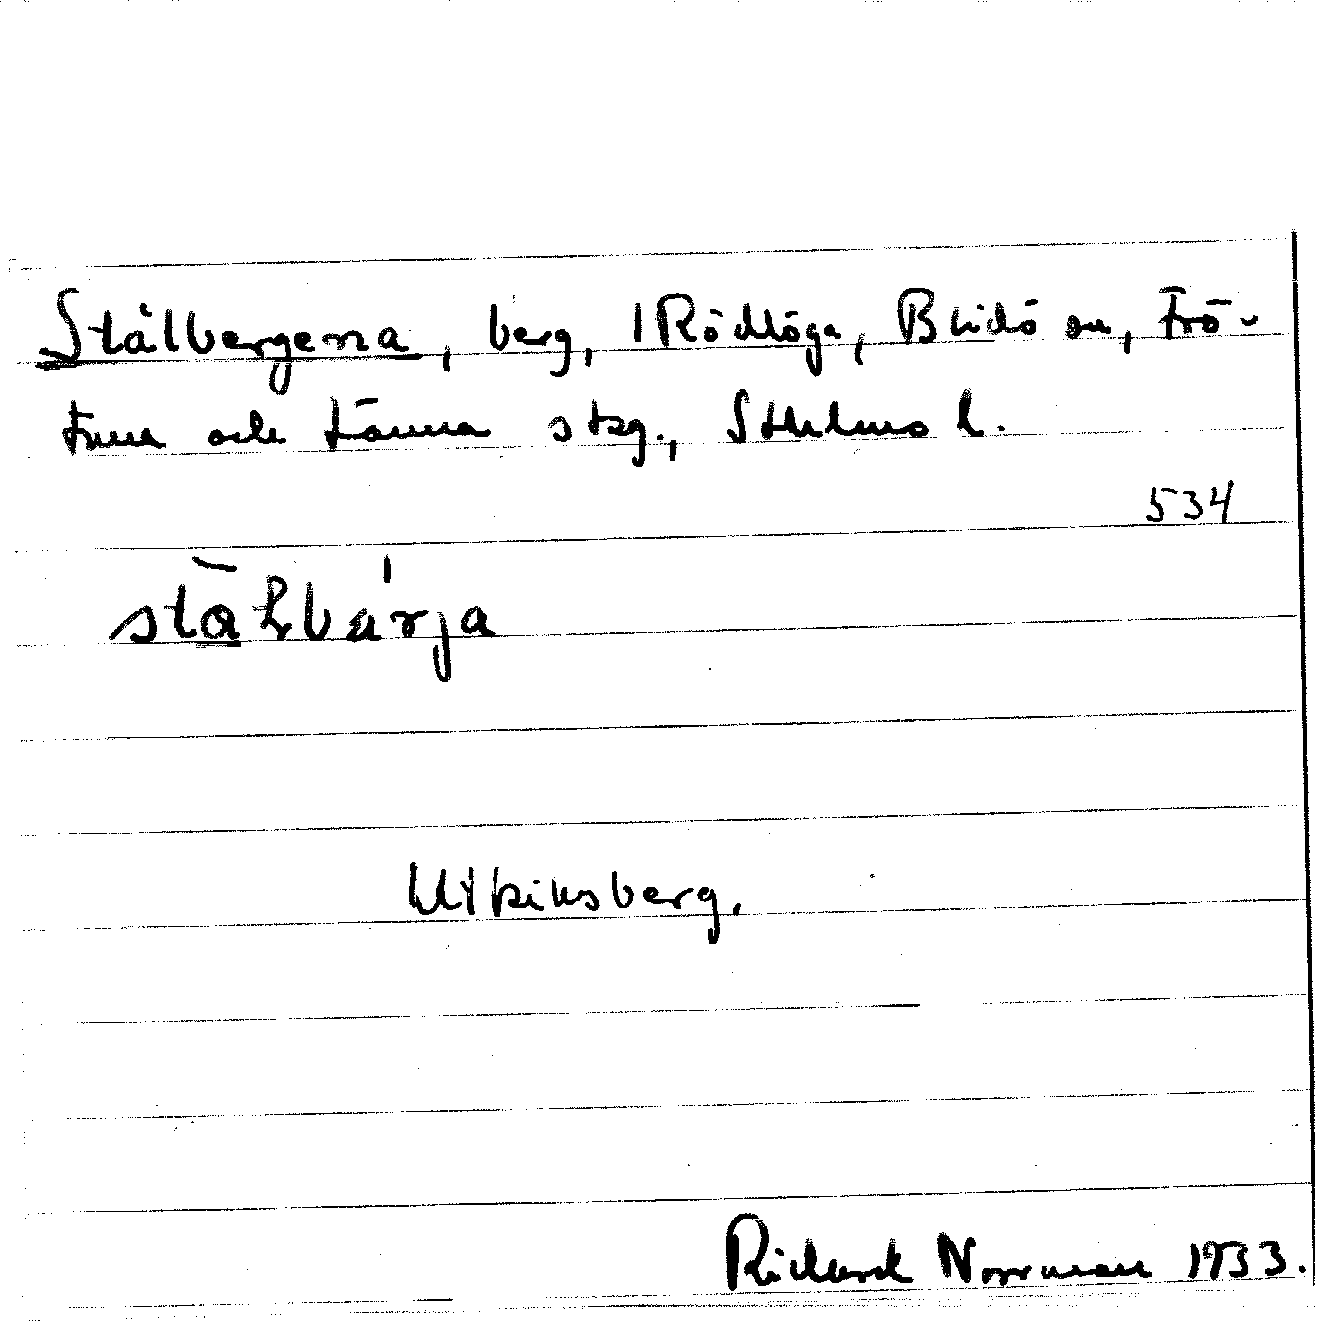 Stålbergena, berg, Rödlöga, Blidö sn, Frö-
tuna och Länna skg., Sthlms l.
534
stålbárja
Utkiksberg.
Richard Norrman 1933.